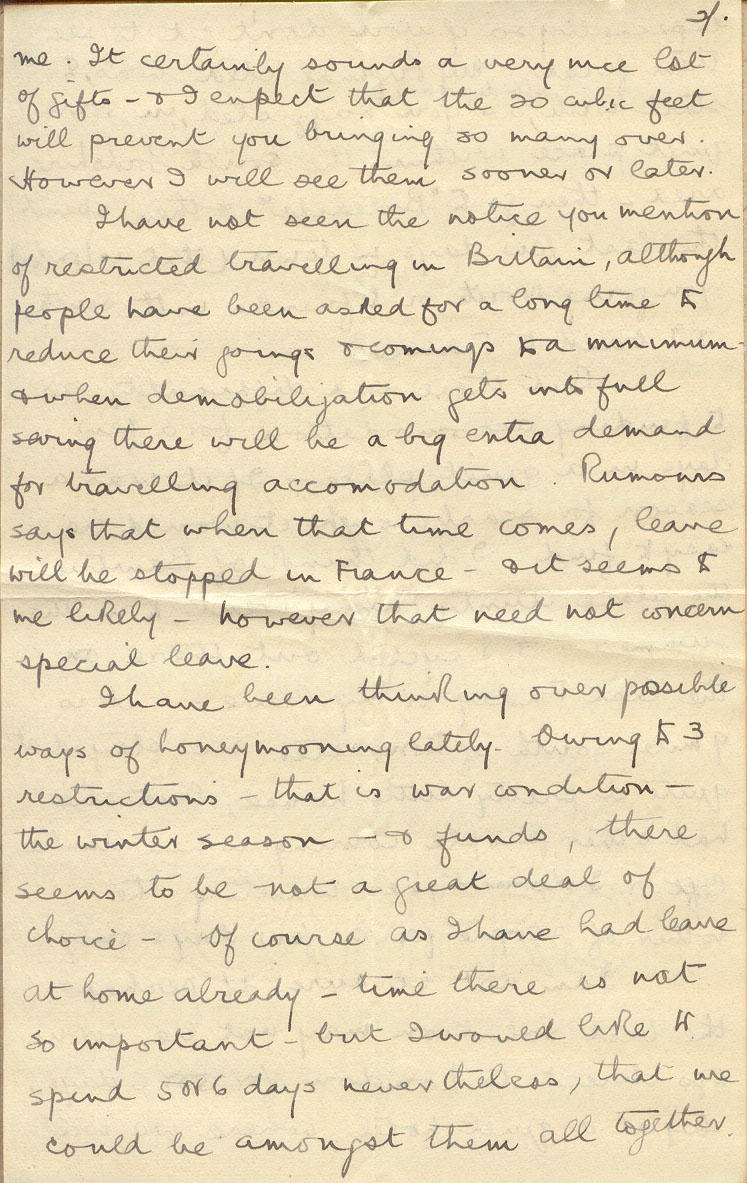 2/.
me. It certainly sounds a very nice lot
of gifts - & I expect that the 20 cubic feet
will prevent you bringing so many over.
However I will see them sooner or later.
I have not seen the notice you mention
of restricted travelling in Britain, although
people have been asked for a long time to
reduce their goings & comings to a minimum -
& when demobilization gets into full
swing there will be a big extra demand
for travelling accomodation. Rumours
says that when that time comes, leave
will be stopped in France - & it seems to
me likely - however that need not concern
special leave.
I have been thinking over possible
ways of honeymooning lately. Owing to 3
restrictions - that is war condition -
the winter season - & funds, there
seems to be not a great deal of
choice - Of course as I have had leave
at home already - time there is not
so important - but I would like to
spend 5 or 6 days nevertheless, that we
could be amongst them all together.